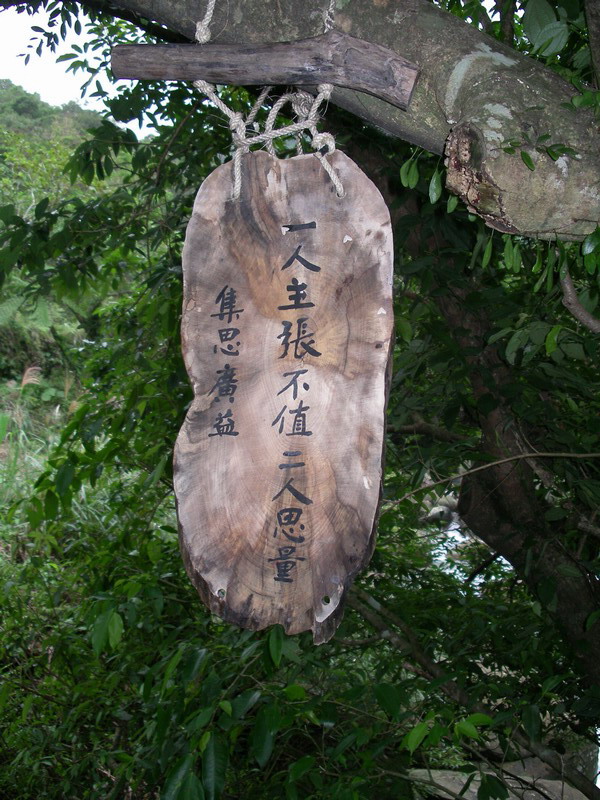 一人主張不值二人思量
集思廣益